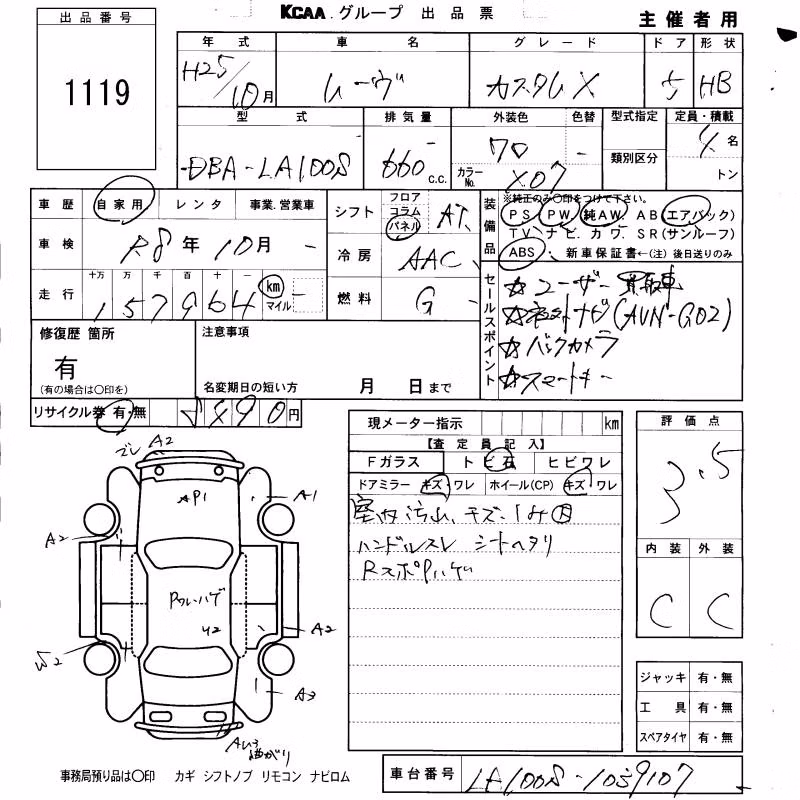 KCAA グループ 出品票
主催者用
出品番号
1119
年式 車名 グレード ドア 形状
H25/10月 ムーヴ カスタムX 5 HB
型式 排気量 外装色 色替 型式指定 定員・積載
DBA-LA100S 660 C.C. クロ - 4名
カラーNo. X07 類別区分 トン
車歴 自家用 レンタ 事業.営業車
車検 R8年10月 -
走行 十万 万 千 百 十 一
157964 km マイル -
シフト フロア コラム パネル AT
冷房 AAC
燃料 G
装備品 ※純正のみ〇印をつけて下さい。
PS PW 純AW AB(エアバック)
TV ナビ カワ SR(サンルーフ)
ABS 新車保証書←(注)後日送りのみ
セールスポイント
☆ユーザー買取車
☆ネオトナビ(AVN-G02)
☆バックカメラ
☆スマートキー
修復歴 箇所
有
(有の場合は〇印を)
注意事項
名変期日の短い方 月 日まで
リサイクル券 有・無 8490円
現メーター指示 km
【査定員記入】
Fガラス トビ石 ヒビワレ
ドアミラー キズ ワレ ホイール(CP) キズ ワレ
室内汚れ、キズ・シミ大
ハンドルスレ シートヘタリ
RスポPハゲ
評価点
3.5
内装 外装
C C
ジャッキ 有・無
工具 有・無
スペアタイヤ 有・無
ズレ A2
AP1
A1
A2
Pウレハゲ
U2
A2
W2
A3
AU3
曲がり
事務局預り品は〇印 カギ シフトノブ リモコン ナビロム
車台番号 LA100S-1039107